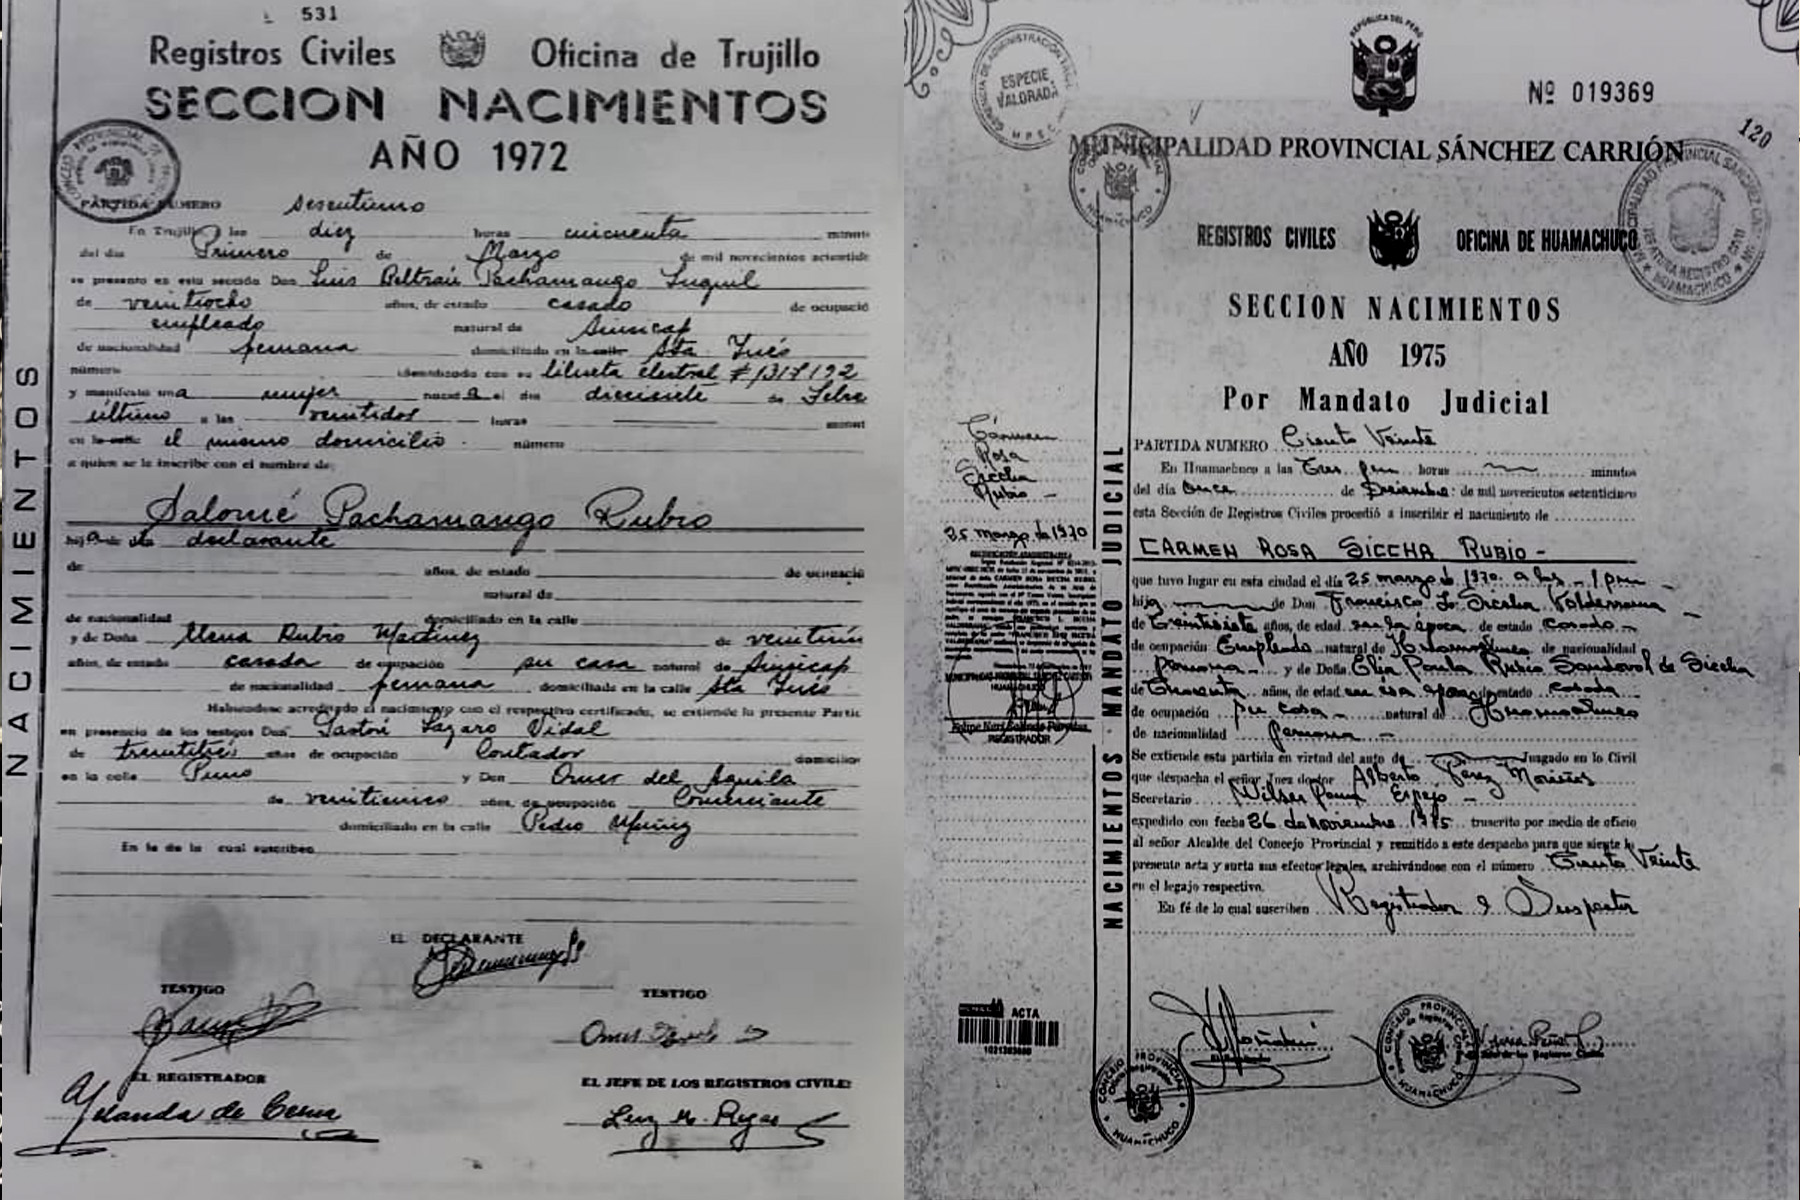 531
Registros Civiles Oficina de Trujillo
SECCION NACIMIENTOS
AÑO 1972
PARTIDA NUMERO sesentiuno
En Trujillo a las diez horas cincuenta minut
del día Primero de Marzo de mil novecientos setentidó
se presentó en esta sección Don Luis Beltrán Pachamango
de veintiocho años, de estado casado de ocupació
empleado natural de Sinsicap
de nacionalidad peruana domiciliado en la calle Sta Inés
número identificado con su libreta electoral #
y manifestó una mujer nacida el día diecisiete de Febre
último a las veintidos horas minut
en la calle el mismo domicilio. número
a quien se le inscribe con el nombre de:
Salomé Pachamango Rubio
hija de declarante
de años, de estado de ocupació
natural de
de nacionalidad domiciliado en la calle
y de Doña Elena Rubio Martínez de veintiún
años, de estado casada de ocupación su casa natural de Sinsicap
de nacionalidad peruana domiciliada en la calle Sta Inés
Habiéndose acreditado el nacimiento con el respectivo certificado, se extiende la presente Partid
en presencia de los testigos Don Lazaro Vidal
de treintitrés años de ocupación Contador domicilia
en la calle Puno y Don Omer del Aguila
de veinticinco años, de ocupación Comerciante
domiciliado en la calle Pedro Muñiz
En fe de lo cual suscriben
EL DECLARANTE
TESTIGO TESTIGO
EL REGISTRADOR EL JEFE DE LOS REGISTROS CIVILE
Yolanda de
Luz M. Rojas
NACIMIENTOS
ESPECIE VALORADA
REPUBLICA DEL PERU
Nº 019369
120
MUNICIPALIDAD PROVINCIAL SÁNCHEZ CARRIÓN
REGISTROS CIVILES OFICINA DE HUAMACHUCO
SECCION NACIMIENTOS
AÑO 1975
Por Mandato Judicial
PARTIDA NUMERO Ciento Veinte
En Huamachuco a las Tres p.m. horas minutos
del día Once de Diciembre de mil novecientos setenticinco
esta Sección de Registros Civiles procedió a inscribir el nacimiento de
CARMEN ROSA SICCHA RUBIO -
que tuvo lugar en esta ciudad el día 25 marzo de 1970 a las 1 pm
hija de Don Francisco L. Siccha Valderrama
de Treintisiete años, de edad en la época de estado casado
de ocupación Empleado natural de Huamachuco de nacionalidad
peruana y de Doña Elia Paula Rubio Sandoval de Siccha
de años, de edad en esa época estado casada
de ocupación su casa natural de Huamachuco
de nacionalidad peruana
Se extiende esta partida en virtud del auto de Juzgado en lo Civil
que despacha el señor Juez doctor Alberto Perez
Secretario Wilser Espejo
expedido con fecha 26 de noviembre 1975 trascrito por medio de oficio
al señor Alcalde del Concejo Provincial y remitido a este despacho para que siente la
presente acta y surta sus efectos legales, archivándose con el número Ciento Veinte
en el legajo respectivo.
En fé de lo cual suscriben Registrador e Inspector
NACIMIENTOS · MANDATO JUDICIAL
Cármen
Rosa
Siccha
Rubio
25 marzo de 1970
REGISTRADOR
ACTA
CONCEJO PROVINCIAL
HUAMACHUCO
CONCEJO PROVINCIAL
HUAMACHUCO